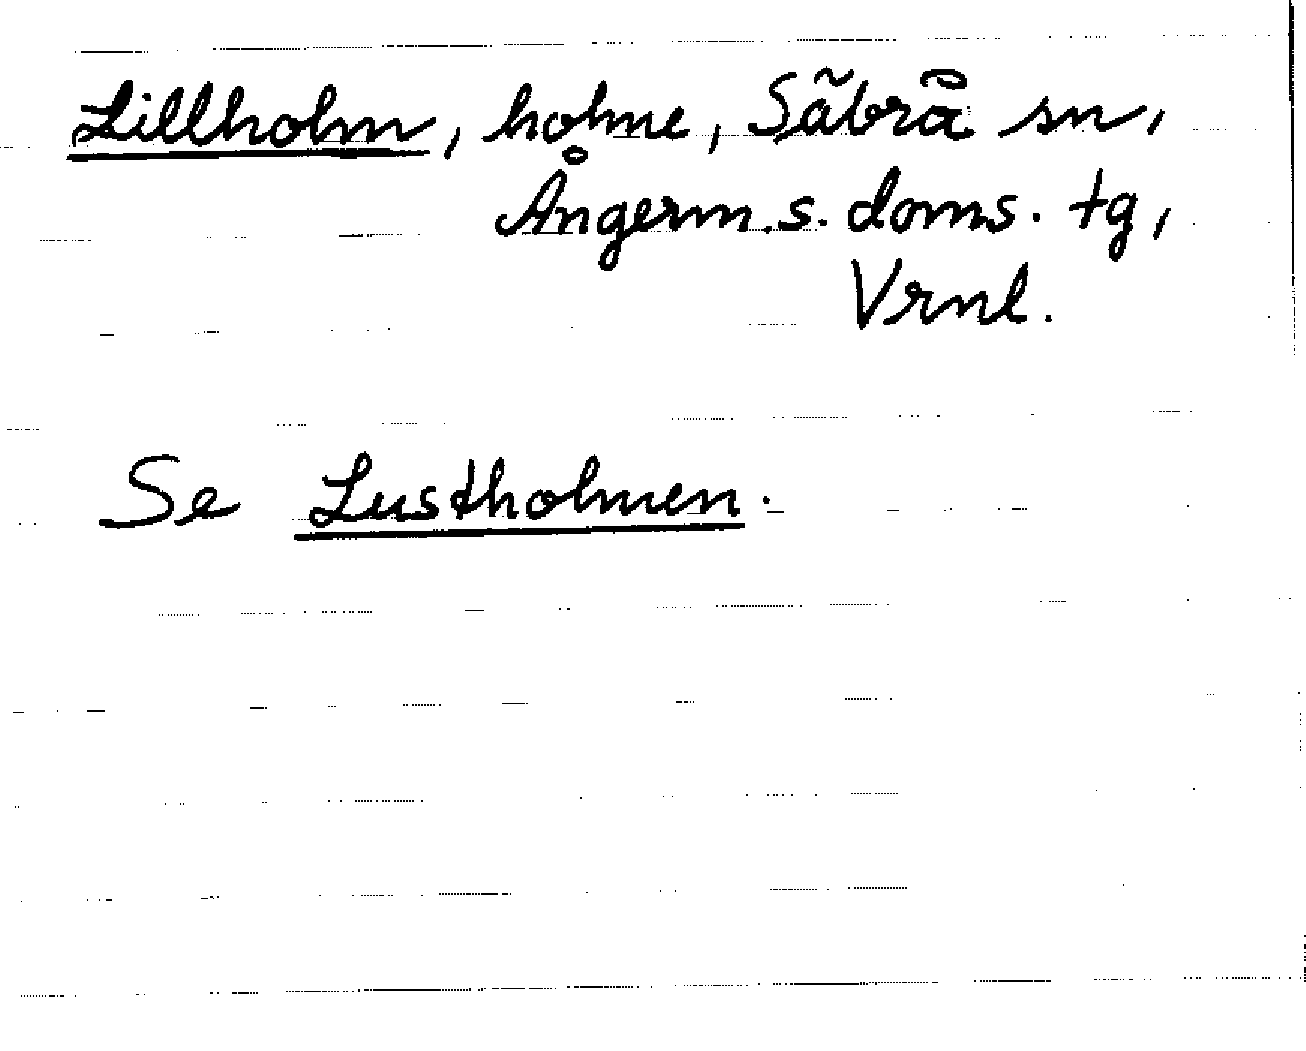 Lillholm, holme, Säbrå sn,
Ångerm. s. doms. tg,
Vrnl.
Se Lustholmen.